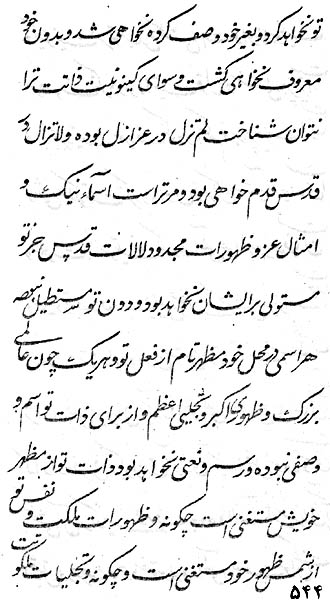 تو نخواهد کرد و بغیر خود وصف کرده نخواهی شد و بدون خود
معروف نخواهی گشت و سوای کینونیت ذاتت ترا
نتوان شناخت لم تزل در عز ازل بوده و لا تزال در
قدس قدم خواهی بود و مر تراست اسمآء نیک و
امثال عز و ظهورات مجد و دلالات قدس جز تو
مستولی بر ایشان نخواهد بود و دون تو مستطیل نیصه
هر اسمی در محل خود مظهر تام از فعل تو و هریک چون عالمی
بزرک و ظهوری اکبر و تجلیی اعظم و از برای ذات تو اسم و
وصفی نبوده و رسم و نعتی نخواهد بود ذات تو از مظهر
نفس تو
خویش مستغنی است چکونه و ظهورات ملکت و
از شمس ظهور خود مستغنی است و چکونه و تجلیات ملکو
تت
۵۴۴